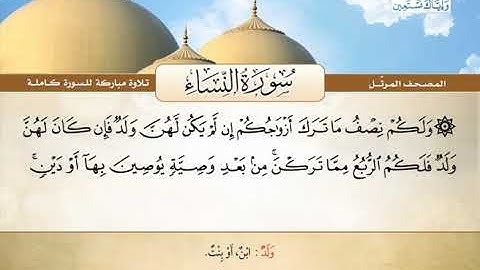 وَإِيَّاكَ نَسْتَعِين
المصحف المرتّل
سُورَةُ النِّسَاءِ
تلاوة مباركة للسورة كاملة
۞ وَلَكُمْ نِصْفُ مَا تَرَكَ أَزْوَاجُكُمْ إِن لَّمْ يَكُن لَّهُنَّ وَلَدٌ فَإِن كَانَ لَهُنَّ
وَلَدٌ فَلَكُمُ الرُّبُعُ مِمَّا تَرَكْنَ ۚ مِن بَعْدِ وَصِيَّةٍ يُوصِينَ بِهَا أَوْ دَيْنٍ ۚ
وَلَدٌ : ابْنٌ، أَوْ بِنْتٌ.